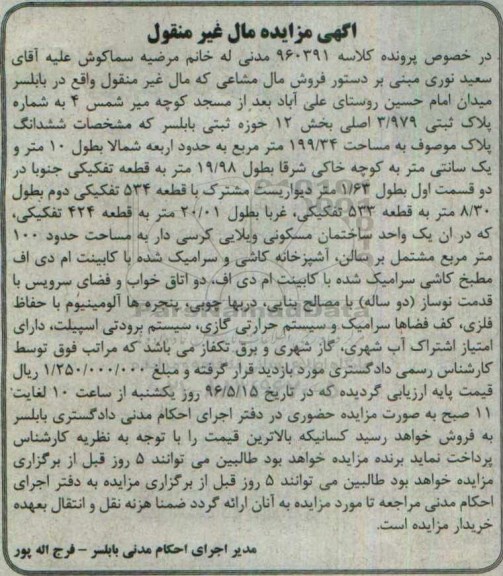 اگهی مزایده مال غیر منقول
در خصوص پرونده کلاسه ۹۶۰۳۹۱ مدنی له خانم مرضیه سماکوش علیه آقای
سعید نوری مبنی بر دستور فروش مال مشاعی که مال غیر منقول واقع در بابلسر
میدان امام حسین روستای علی آباد بعد از مسجد کوچه میر شمس ۴ به شماره
پلاک ثبتی ۳/۹۷۹ اصلی بخش ۱۲ حوزه ثبتی بابلسر که مشخصات ششدانگ
پلاک موصوف به مساحت ۱۹۹/۳۴ متر مربع به حدود اربعه شمالا بطول ۱۰ متر و
یک سانتی متر به کوچه خاکی شرقا بطول ۱۹/۹۸ متر به قطعه تفکیکی جنوبا در
دو قسمت اول بطول ۱/۶۳ متر دیواریست مشترک با قطعه ۵۳۴ تفکیکی دوم بطول
۸/۳۰ متر به قطعه ۵۳۳ تفکیکی، غربا بطول ۲۰/۰۱ متر به قطعه ۴۲۴ تفکیکی،
که در ان یک واحد ساختمان مسکونی ویلایی کرسی دار به مساحت حدود ۱۰۰
متر مربع مشتمل بر سالن، آشپزخانه کاشی و سرامیک شده با کابینت ام دی اف
مطبخ کاشی سرامیک شده با کابینت ام دی اف، دو اتاق خواب و فضای سرویس با
قدمت نوساز (دو ساله) با مصالح بنایی، دربها چوبی، پنجره ها آلومینیوم با حفاظ
فلزی، کف فضاها سرامیک و سیستم حرارتی گازی، سیستم برودتی اسپیلت، دارای
امتیاز اشتراک آب شهری، گاز شهری و برق تکفاز می باشد که مراتب فوق توسط
کارشناس رسمی دادگستری مورد بازدید قرار گرفته و مبلغ ۱/۲۵۰/۰۰۰/۰۰۰ ریال
قیمت پایه ارزیابی گردیده که در تاریخ ۹۶/۵/۱۵ روز یکشنبه از ساعت ۱۰ لغایت
۱۱ صبح به صورت مزایده حضوری در دفتر اجرای احکام مدنی دادگستری بابلسر
به فروش خواهد رسید کسانیکه بالاترین قیمت را با توجه به نظریه کارشناس
پرداخت نماید برنده مزایده خواهد بود طالبین می توانند ۵ روز قبل از برگزاری
مزایده خواهد بود طالبین می توانند ۵ روز قبل از برگزاری مزایده به دفتر اجرای
احکام مدنی مراجعه تا مورد مزایده به آنان ارائه گردد ضمنا هزینه نقل و انتقال بعهده
خریدار مزایده است.
مدیر اجرای احکام مدنی بابلسر - فرج اله پور